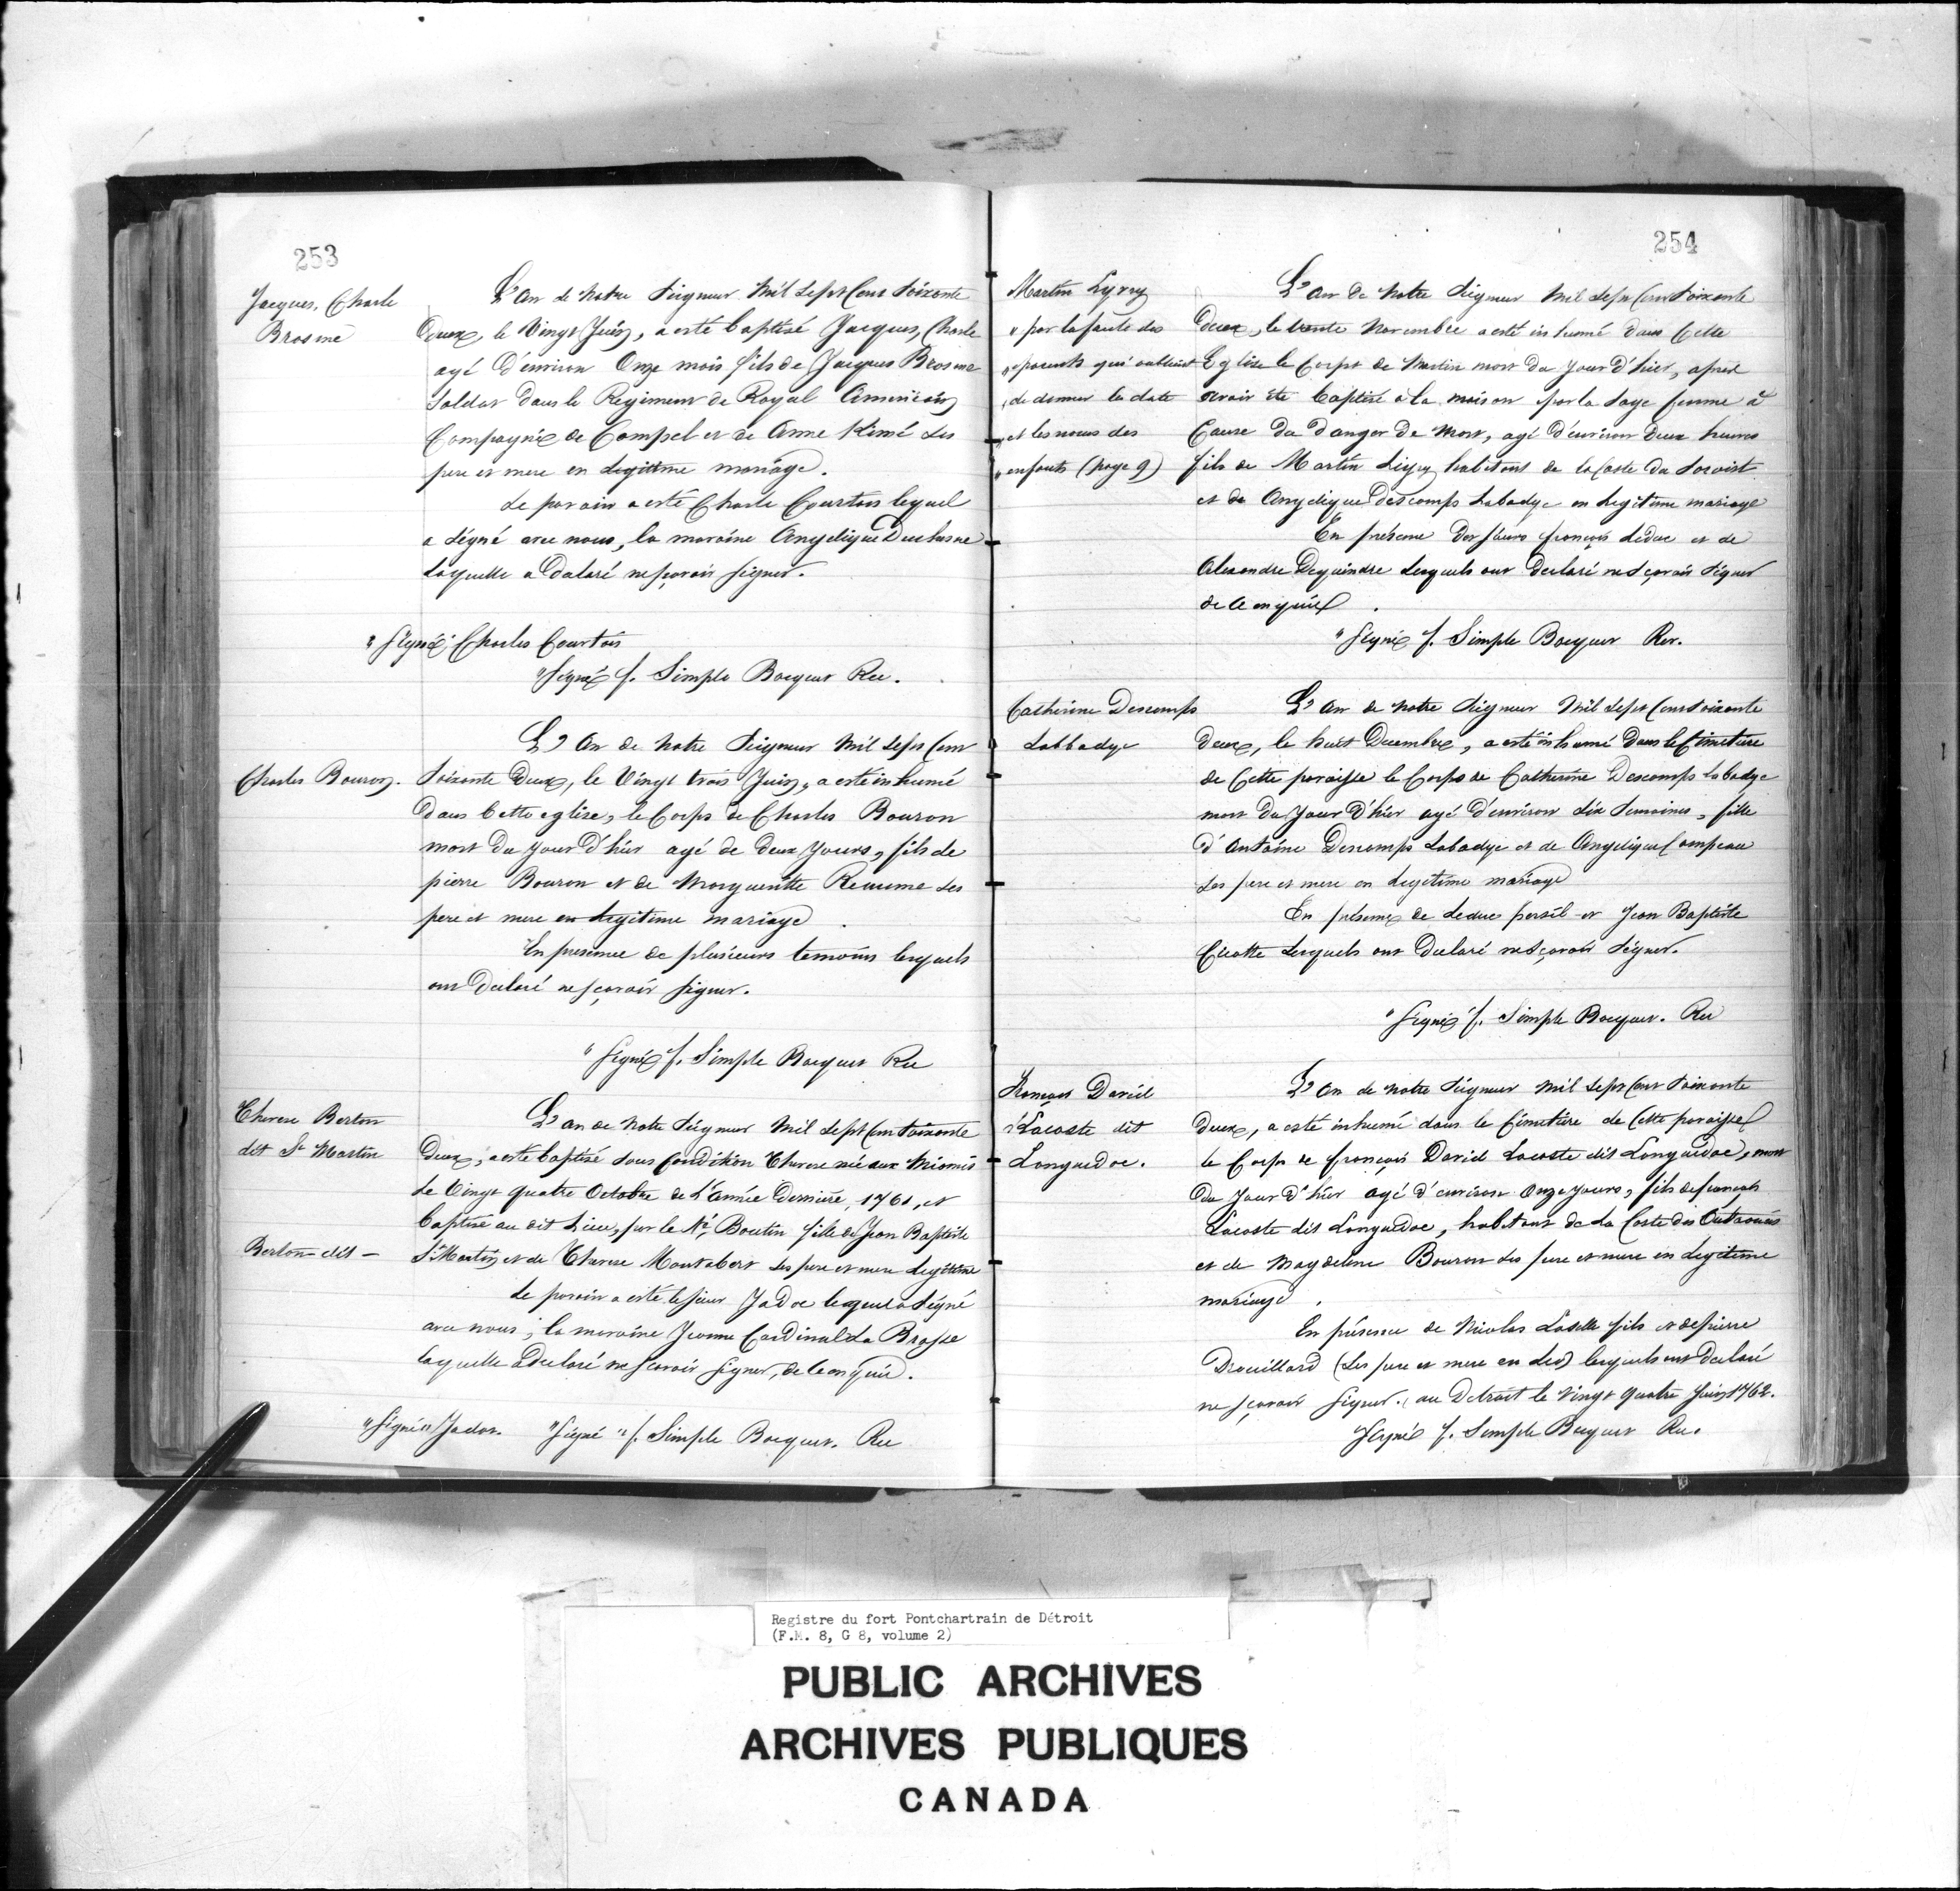 253
Jacques, Charle
Brosme
L'an de notre Seigneur Mil Sept Cent Soixante
Deux, le Vingt Juin, a esté baptisé Jacques, Charle
agé d'environ Onze mois fils de Jacques Brosme
Soldat dans le Regiment de Royal Americain
Compagnie de Compel et de Anne Kimé ses
pere et mere en Legitime mariage.
Le parain a esté Charle Courtois lequel
a Signé avec nous, la maraine Angelique Duchesne
Laquelle a Declaré ne sçavoir signer.
"Signé", Charles Courtois
"Signé f. Simple Bocquet Rec.
Charles Bouron.
L'An de notre Seigneur Mil Sept Cent
Soixante Deux, le Vingt trois Juin, a esté inhumé
Dans Cette eglise, le Corps de Charles Bouron
mort du jour d'hier agé de Deux Jours, fils de
pierre Bouron et de Margueritte Reaume ses
pere et mere en Legitime mariage.
En presence de plusieurs temoins lesquels
ont Declaré ne sçavoir signer.
"Signé f. Simple Bocquet Rec
Therese Berton
dit St Martin
L'an de notre Seigneur Mil Sept Cent Soixante
Deux, a esté baptisé sous Condition Therese née aux Miamis
Le Vingt quatre Octobre de L'année Derniere, 1761, et
baptisé au dit Lieu, par le Né Boutin fille de Jean Baptiste
Berton dit -
St Martin et de Therese Montabert ses pere et mere Legitime
Le parain a esté le sieur Jadoc lequel a Signé
avec nous; la maraine Jeanne Cardinal La Brosse
laquelle a Declaré ne sçavoir signer, de ce enquis.
"Signé" Jadoc. "Signé" f. Simple Bocquet. Rec
254
Martin Lyvry
"par la faute des
"parents qui oublient
"de donner la date
"et les noms des
"enfants (page 9)
L'an de Notre Seigneur Mil Sept Cent Soixante
deux, le trente Novembre a esté inhumé dans Cette
Eglise le Corps de Martin mort du jour d'hier, apres
avoir été baptisé à la maison par la Sage femme à
Cause du danger de Mort, agé d'environ Deux heures
fils de Martin Livry habitant de la Coste du Soroist
et de Angelique Descomps Labadye en Legitime mariage
En présence Des sieurs françois Leduc et de
Alexandre Dequindre Lesquels ont Declaré ne Sçavoir Signer
de ce enquis.
"Signé f. Simple Bocquet Rec.
Catherine Descomps
Labbadye
L'an de notre Seigneur Mil Sept Cent Soixante
Deux, le huit Decembre, a esté inhumé Dans le Cimetiere
de Cette paroisse le Corps de Catherine Descomps Labadye
mort du Jour d'hier agé d'environ Six Semaines, fille
d'Antoine Descomps Labadye et de Angelique Campeau
Ses pere et mere en Legitime mariage
En présence de Leduc persil et Jean Baptiste
Cicotte Lesquels ont Declaré ne Sçavoir Signer.
"Signé f. Simple Bocquet. Rec
François David
Lacoste dit
Languedoc.
L'an de notre Seigneur Mil Sept Cent Soixante
Deux, a esté inhumé dans le Cimetiere de Cette paroisse
le Corps de françois David Lacoste dit Languedoc, mort
du Jour d'hier agé d'environ Onze jours, fils de françois
Lacoste dit Languedoc, habitant de La Coste des Outaouais
et de Magdelene Bouron ses pere et mere en Legitime
mariage.
En présence de Nicolas Laselle fils et de pierre
Drouillard (Ses pere et mere en Led) lesquels ont Declaré
ne sçavoir signer. au Detroit le Vingt quatre Juin 1762.
"Signé f. Simple Bocquet Rec.
Registre du fort Pontchartrain de Détroit
(F.M. 8, G 8, volume 2)
PUBLIC ARCHIVES
ARCHIVES PUBLIQUES
CANADA